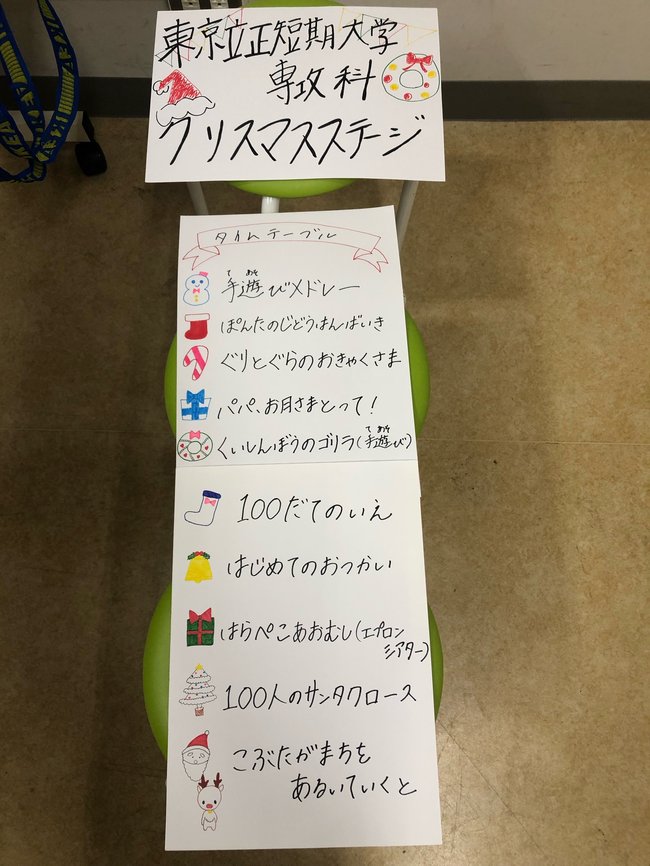 東京立正短期大学
専攻科
クリスマスステージ
タイムテーブル
て あそ
手遊びメドレー
ぽんたのじどうはんばいき
ぐりとぐらのおきゃくさま
パパ、お月さまとって!
て あそ
くいしんぼうのゴリラ(手遊び)
100だてのいえ
はじめてのおつかい
はらぺこあおむし(エプロン
シアター)
100人のサンタクロース
こぶたがまちを
あるいていくと